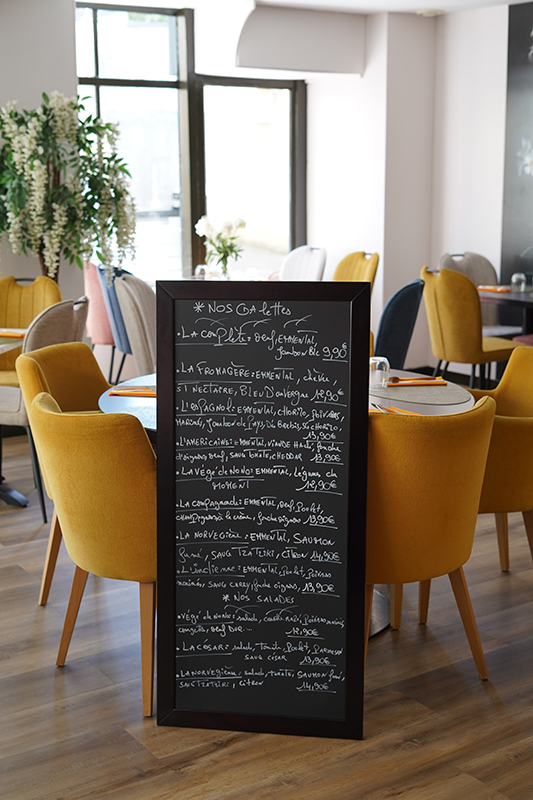 * NOS GAlettes
• LA complète: oeuf, EMMENTAL,
Jambon Blc 9,90€
• LA FROMAGÈRE: EMMENTAL, chèvre,
ST NECTAIRE, Bleu D'AUVERGNE 12,90€
• L'ESPAGNOL: EMMENTAL, CHORIZO, POIVRONS,
MARINÉS, Jambon de Pays, CHORIZO
13,90€
L'AMERICAIN: EMMENTAL, VIANDE HACHÉ,
d'oignons, oeuf, SAUC TOMATE, CHEDDAR 13,90€
• LA VÉGÉ de NONO: EMMENTAL, Légumes du
MOMENT 12,90€
• LA campagnarde: EMMENTAL, oeuf, Poulet,
champignons à la crème, fondue oignons 13,90€
• LA NORVEGIÈNE: EMMENTAL, SAUMON
fumé, SAUC TZATZIKI, CITRON 14,90€
• L'indienne: EMMENTAL, Poulet, Poivrons
marinés, SAUC CURRY, fondue oignons, 13,90€
* NOS SALADES
• Végé de Nono: salade, Poivrons marinés,
oeuf DUR... 12,90€
• LA CESAR: salade, Tomate, Poulet, PARMESAN
SAUC CÉSAR 13,90€
• LA NORVEGIÈNE: salade, tomate, SAUMON fumé,
SAUC TZATZIKI, CITRON 14,90€